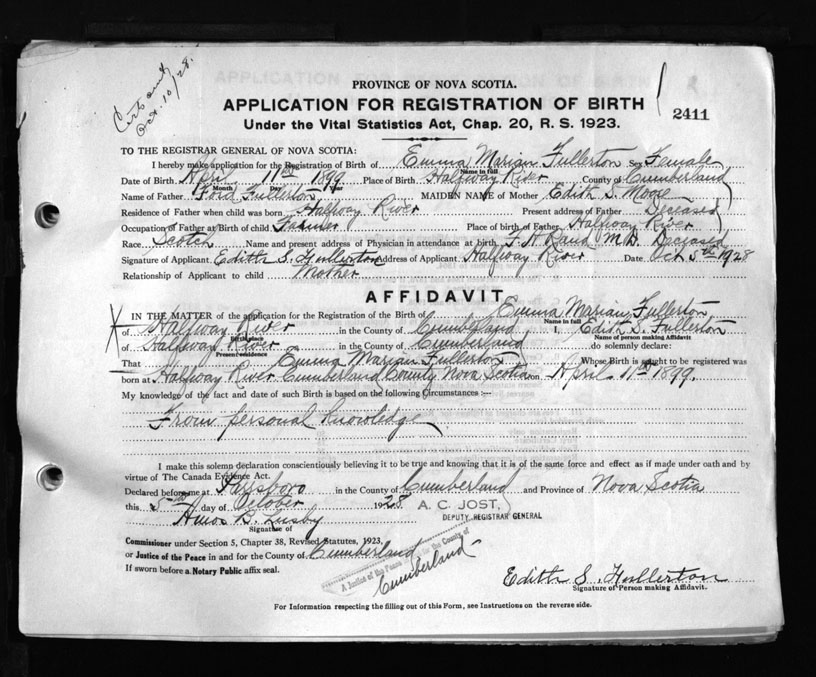 Oct. 10/28.
PROVINCE OF NOVA SCOTIA.
APPLICATION FOR REGISTRATION OF BIRTH
2411
Under the Vital Statistics Act, Chap. 20, R. S. 1923.
TO THE REGISTRAR GENERAL OF NOVA SCOTIA:
I hereby make application for the Registration of Birth of Emma Marian Fullerton Sex Female
Name in full
Date of Birth April 11th 1899 Place of Birth Halfway River County of Cumberland
Month Day Year
Name of Father Ford Fullerton MAIDEN NAME of Mother Edith S. Moore
Residence of Father when child was born Halfway River Present address of Father Deceased
Occupation of Father at Birth of child Farmer Place of birth of Father Halfway River
Race Scotch Name and present address of Physician in attendance at birth F. A. Rand M.D. Deceased
Signature of Applicant Edith S. Fullerton Address of Applicant Halfway River Date Oct 5th 1928
Relationship of Applicant to child Mother
AFFIDAVIT
IN THE MATTER of the application for the Registration of the Birth of Emma Marian Fullerton
Name in full
of Halfway River in the County of Cumberland I, Edith S. Fullerton
Birthplace Name of person making Affidavit
of Halfway River in the County of Cumberland do solemnly declare:
Present residence
That Emma Marian Fullerton Whose Birth is sought to be registered was
born at Halfway River Cumberland County Nova Scotia on April 11th 1899.
My knowledge of the fact and date of such Birth is based on the following Circumstances :—
From personal knowledge
I make this solemn declaration conscientiously believing it to be true and knowing that it is of the same force and effect as if made under oath and by
virtue of The Canada Evidence Act.
Declared before me at Parrsboro in the County of Cumberland and Province of Nova Scotia
this 5th day of October 1928 A. C. JOST,
DEPUTY REGISTRAR GENERAL
Amos B. Lusby
Signature of
Commissioner under Section 5, Chapter 38, Revised Statutes, 1923,
or Justice of the Peace in and for the County of Cumberland
If sworn before a Notary Public affix seal.
A Justice of the Peace in and for the County of
Cumberland
Edith S. Fullerton
Signature of Person making Affidavit.
For Information respecting the filling out of this Form, see Instructions on the reverse side.